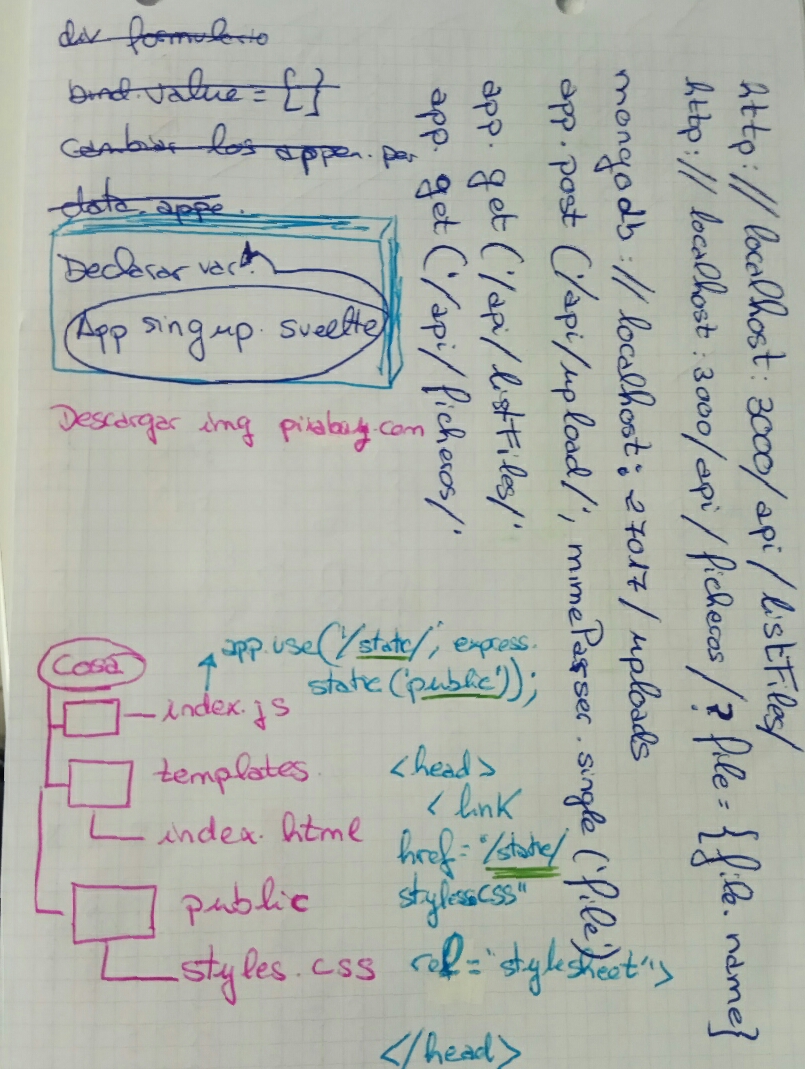 div formulario
bind.value = { }
Cambiar los appen. por
data. appe.
Declarar var.
App singup. svelte
Descargar img pixabay.com
http://localhost:3000/api/listFiles/
http://localhost:3000/api/ficheros/?file={file.name}
mongodb://localhost:27017/uploads
app.post('/api/upload/', mimeParser.single('file')
app.get('/api/listFiles/'
app.get('/api/ficheros/'
Cosa
index.js
templates
index.html
public
styles.css
app.use('/static/', express.
static('public'));
<head>
<link
href="/static/
styles.css"
rel="stylesheet">
</head>